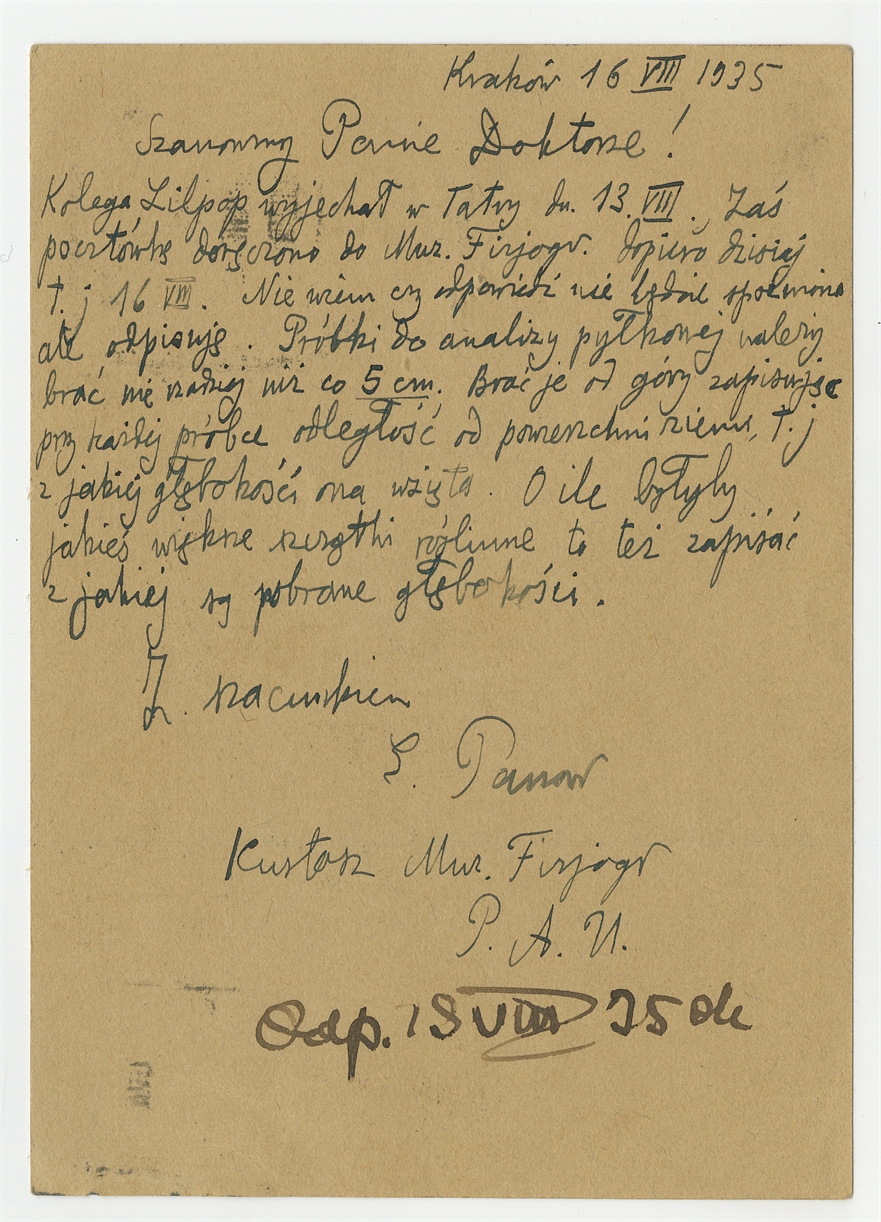 Kraków 16 VIII 1935
Szanowny Panie Doktorze!
Kolega Lilpop wyjechał w Tatry dn. 13.VIII. Zaś
pocztówkę doręczono do Muz. Fizjogr. dopiero dzisiaj
t.j 16 VIII. Nie wiem czy odpowiedź nie będzie spóźniona
ale odpisuję. Próbki do analizy pyłkowej należy
brać nie rzadziej niż co 5 cm. Brać je od góry zapisując
przy każdej próbce odległość od powierzchni ziemi, t.j
z jakiej głębokości ona wzięta. O ile byłyby
jakieś większe szczątki roślinne to też zapisać
z jakiej są pobrane głębokości.
Z. szacunkiem
E. Panow
Kustosz Muz. Fizjogr
P. A. U.
Odp. VIII 35